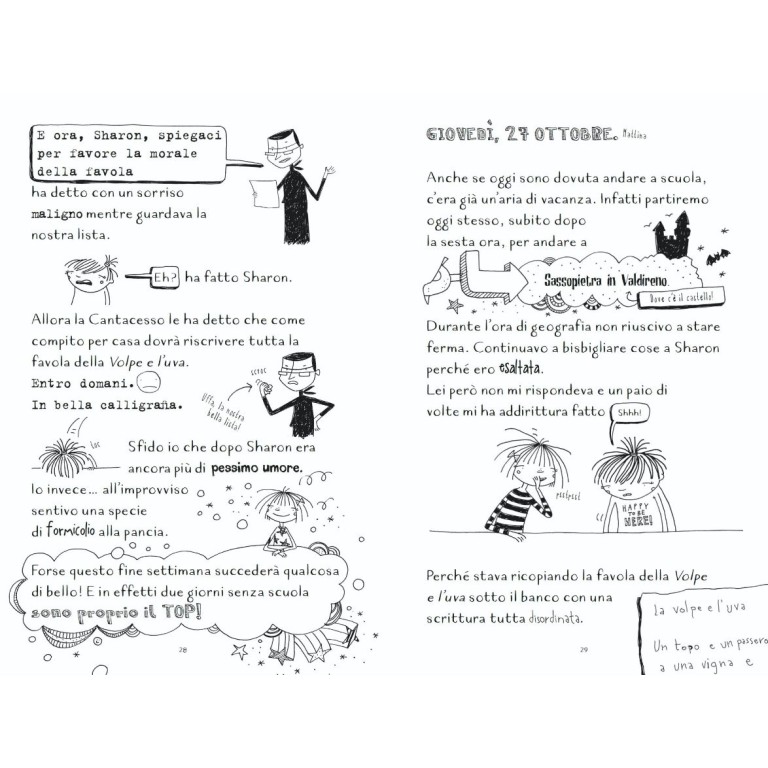 E ora, Sharon, spiegaci
per favore la morale
della favola
ha detto con un sorriso
maligno mentre guardava la
nostra lista.
Eh?
ha fatto Sharon.
Allora la Cantacesso le ha detto che come
compito per casa dovrà riscrivere tutta la
favola della Volpe e l'uva.
Entro domani.
In bella calligrafia.
scroc
Uffa, la nostra
bella lista!
Sfido io che dopo Sharon era
ancora più di pessimo umore.
Io invece... all'improvviso
sentivo una specie
di formicolio alla pancia.
Forse questo fine settimana succederà qualcosa
di bello! E in effetti due giorni senza scuola
sono proprio il TOP!
28
GIOVEDÌ, 27 OTTOBRE. Mattina
Anche se oggi sono dovuta andare a scuola,
c'era già un'aria di vacanza. Infatti partiremo
oggi stesso, subito dopo
la sesta ora, per andare a
Sassopietra in Valdireno.
Dove c'è il castello!
Durante l'ora di geografia non riuscivo a stare
ferma. Continuavo a bisbigliare cose a Sharon
perché ero esaltata.
Lei però non mi rispondeva e un paio di
volte mi ha addirittura fatto
Shhh!
HAPPY
TO BE
HERE!
Perché stava ricopiando la favola della Volpe
e l'uva sotto il banco con una
scrittura tutta disordinata.
la volpe e l'uva
Un topo e un passero
a una vigna e
29